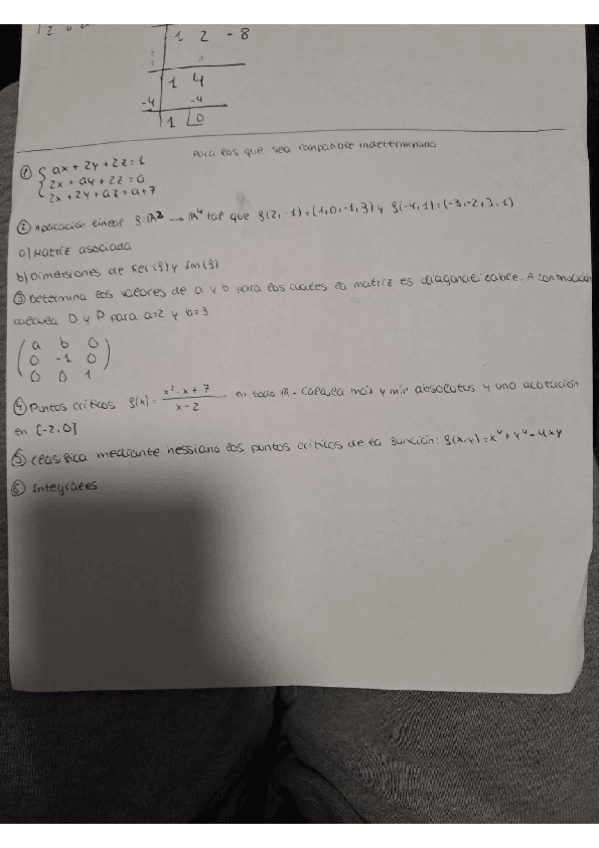 1 2 -8
1 4
-4 -4
1 0
① { ax + 2y + 2z = 1 para los que sea compatible indeterminado
2x + ay + 2z = a
2x + 2y + az = a + 7
② Aplicación lineal f: ℝ² → ℝ⁴ tal que f(2, -1) = (1, 0, -1, 3) y f(-4, 1) = (-3, -2, 3, 1)
a) Matriz asociada
b) Dimensiones de Ker(f) y Im(f)
③ Determina los valores de a y b para los cuales la matriz es diagonalizable. A continuación
calcula D y P para a=2 y b=3
( a b 0
0 -1 0
0 0 1 )
④ Puntos críticos f(x) = x² - x + 7 / x - 2 en todo ℝ. Calcula máx y mín absolutos y una acotación
en [-2, 0]
⑤ Clasifica mediante hessiano los puntos críticos de la función: f(x, y) = x⁴ + y⁴ - 4xy
⑥ Integrales